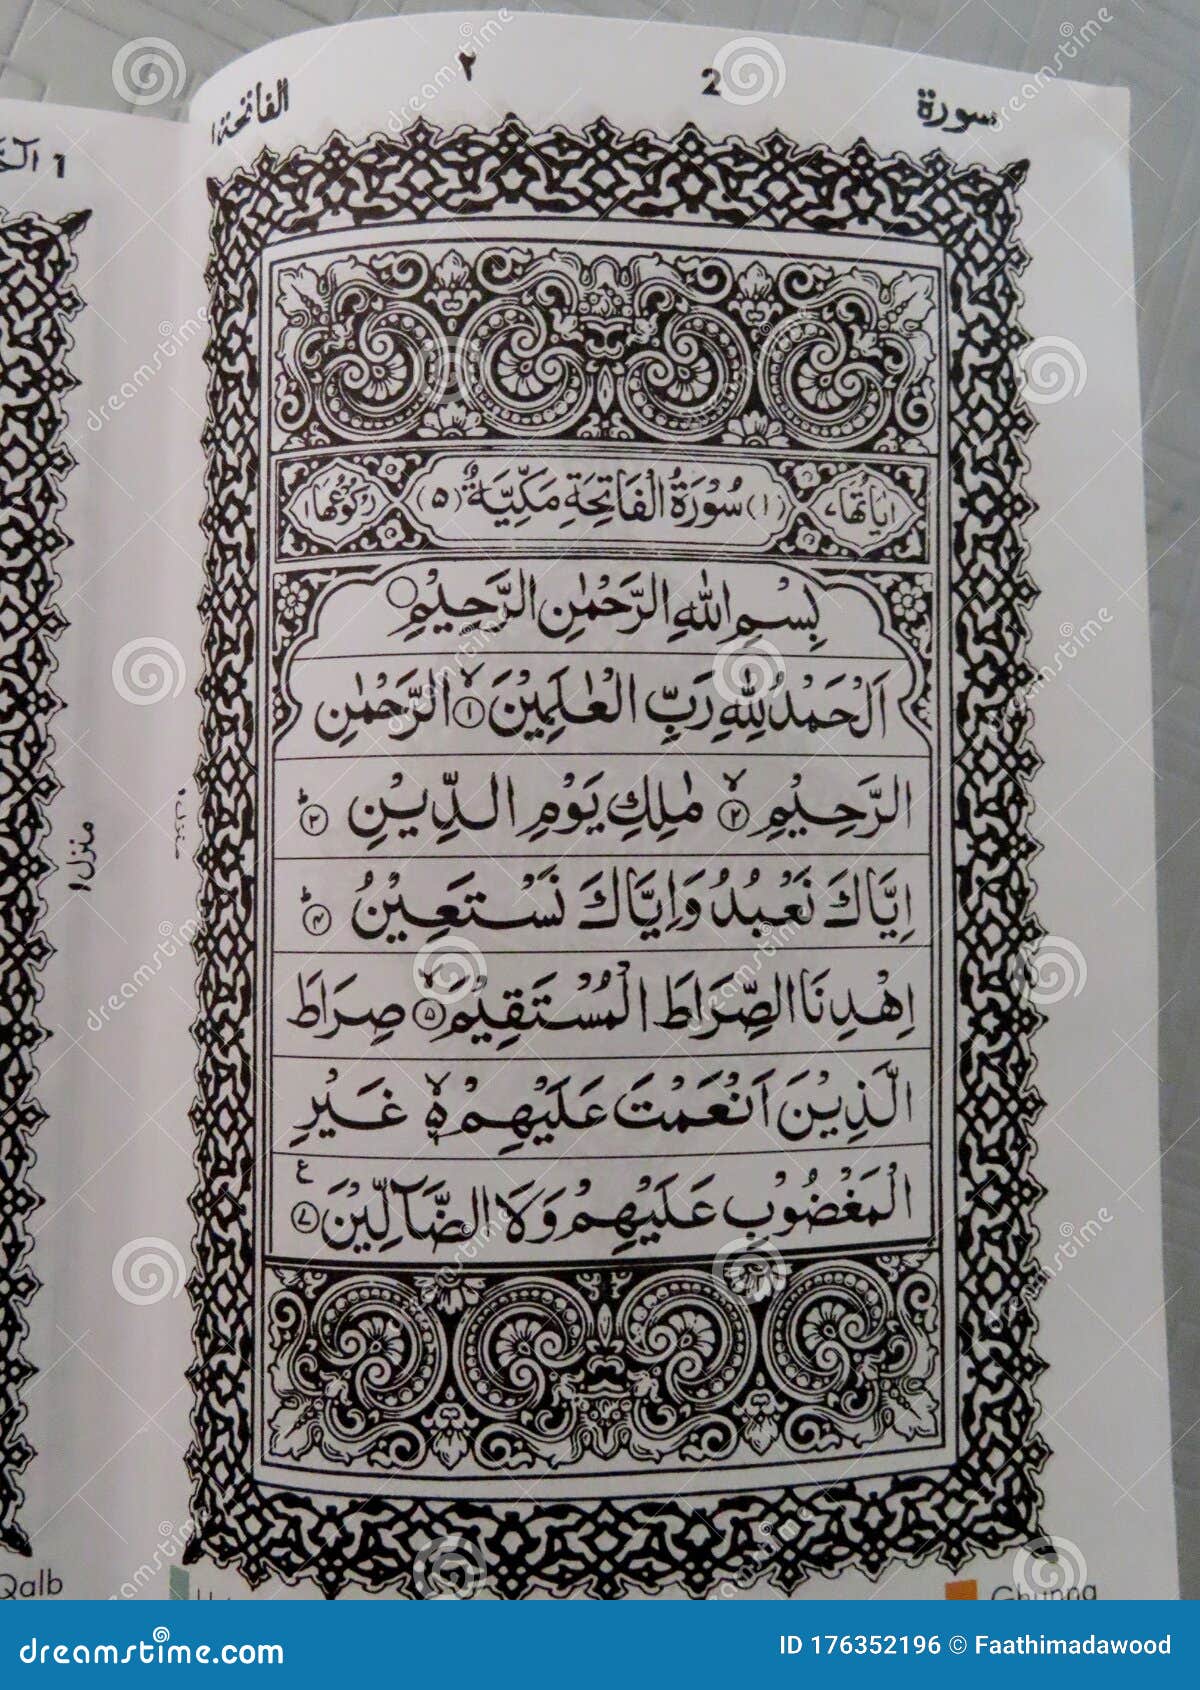 سورة 2 ٢ الفاتحة ١
اٰیَاتُهَا، (١) سُوْرَةُ الْفَاتِحَةِ مَكِّيَّةٌ (٥) رُكُوْعُهَا
بِسْمِ اللّٰهِ الرَّحْمٰنِ الرَّحِيْمِ
اَلْحَمْدُ لِلّٰهِ رَبِّ الْعٰلَمِيْنَ ۙ﴿١﴾ الرَّحْمٰنِ
الرَّحِيْمِ ۙ﴿٢﴾ مٰلِكِ يَوْمِ الدِّيْنِ ؕ﴿٣﴾
اِيَّاكَ نَعْبُدُ وَاِيَّاكَ نَسْتَعِيْنُ ؕ﴿۴﴾
اِهْدِنَا الصِّرَاطَ الْمُسْتَقِيْمَ ۙ﴿۵﴾ صِرَاطَ
الَّذِيْنَ اَنْعَمْتَ عَلَيْهِمْ ۙ۬ۦ غَيْرِ
الْمَغْضُوْبِ عَلَيْهِمْ وَلَا الضَّآلِّيْنَ ﴿٧﴾ ع
منزل ١
1
Qalb
Ghunna
dreamstime.com
ID 176352196 © Faathimadawood